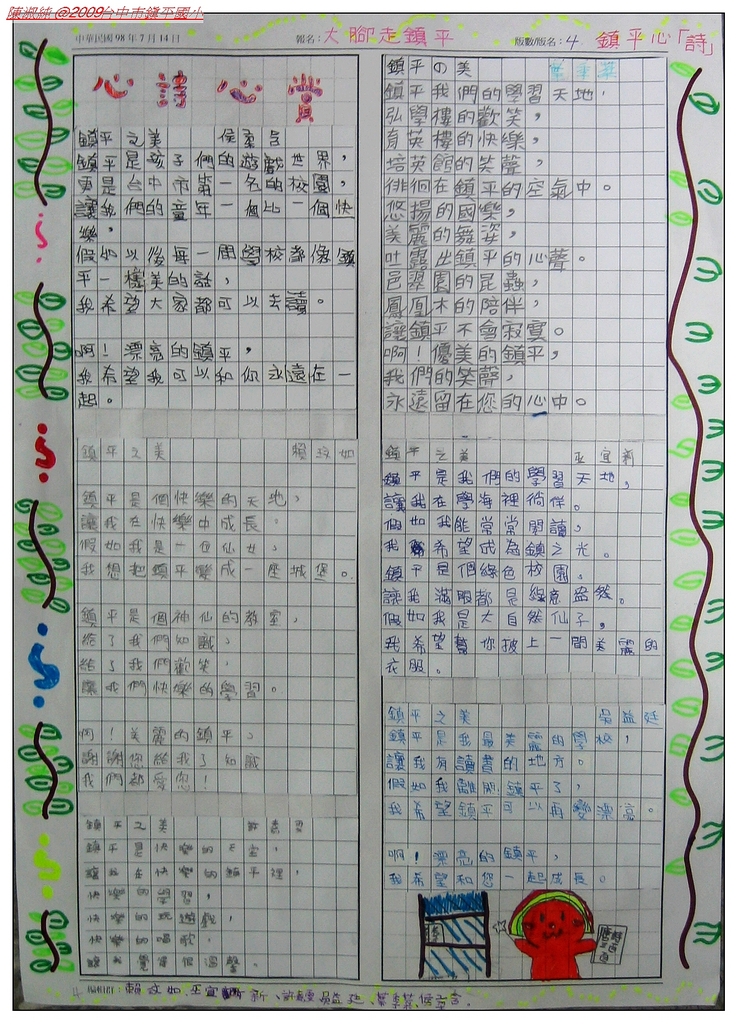 陳淑純@2009台中市鎮平國小
中華民國98年7月14日
報名：大腳走鎮平
版數/版名：4 鎮平心「詩」
心詩心賞
鎮平之美
鎮平是孩子們的遊戲世界，
更是台中市第一名的校園，
讓我們的童年一個比一個快
樂，
假如以後每一間學校都像鎮
平一樣美的話，
我希望大家都可以去讀。
啊！漂亮的鎮平，
我希望我可以和你永遠在一
起。
鎮平之美 賴玟如
鎮平是個快樂的天地，
讓我在快樂中成長。
假如我是一位仙女，
我想把鎮平變成一座城堡。
鎮平是個神仙的教室，
給了我們知識，
給了我們歡笑，
讓我們快樂的學習。
啊！美麗的鎮平，
謝謝您給我了知識
我們都愛您！
鎮平之美
鎮平是快樂的
讓我在快樂的鎮平裡，
快樂的學習，
快樂的玩遊戲，
快樂的唱歌，
讓我覺得很溫馨。
鎮平の美
鎮平我們的學習天地，
弘學樓的歡笑，
育英樓的快樂，
培英館的笑聲，
徘徊在鎮平的空氣中。
悠揚的國樂，
美麗的舞姿，
吐露出鎮平的心聲。
邑翠園的昆蟲，
鳳凰木的陪伴，
讓鎮平不會寂寞。
啊！優美的鎮平，
我們的笑聲，
永遠留在您的心中。
鎮平之美 巫宜新
鎮平是我們的學習天地，
讓我在學海裡徜徉。
假如我能常常閱讀，
我希望成為鎮之光。
鎮平是個綠色校園。
讓我滿眼都是綠意盎然。
假如我是大自然仙子，
我希望幫你披上一間美麗的
衣服。
鎮平之美 吳益廷
鎮平是我最美麗的學校，
讓我有讀書的地方。
假如我離開鎮平了，
我希望鎮平可以再變漂亮。
啊！漂亮的鎮平，
我希望和您一起成長。